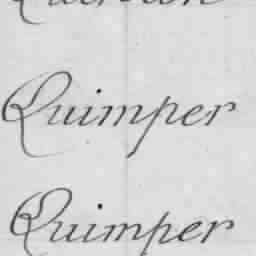 Quimper
Quimper